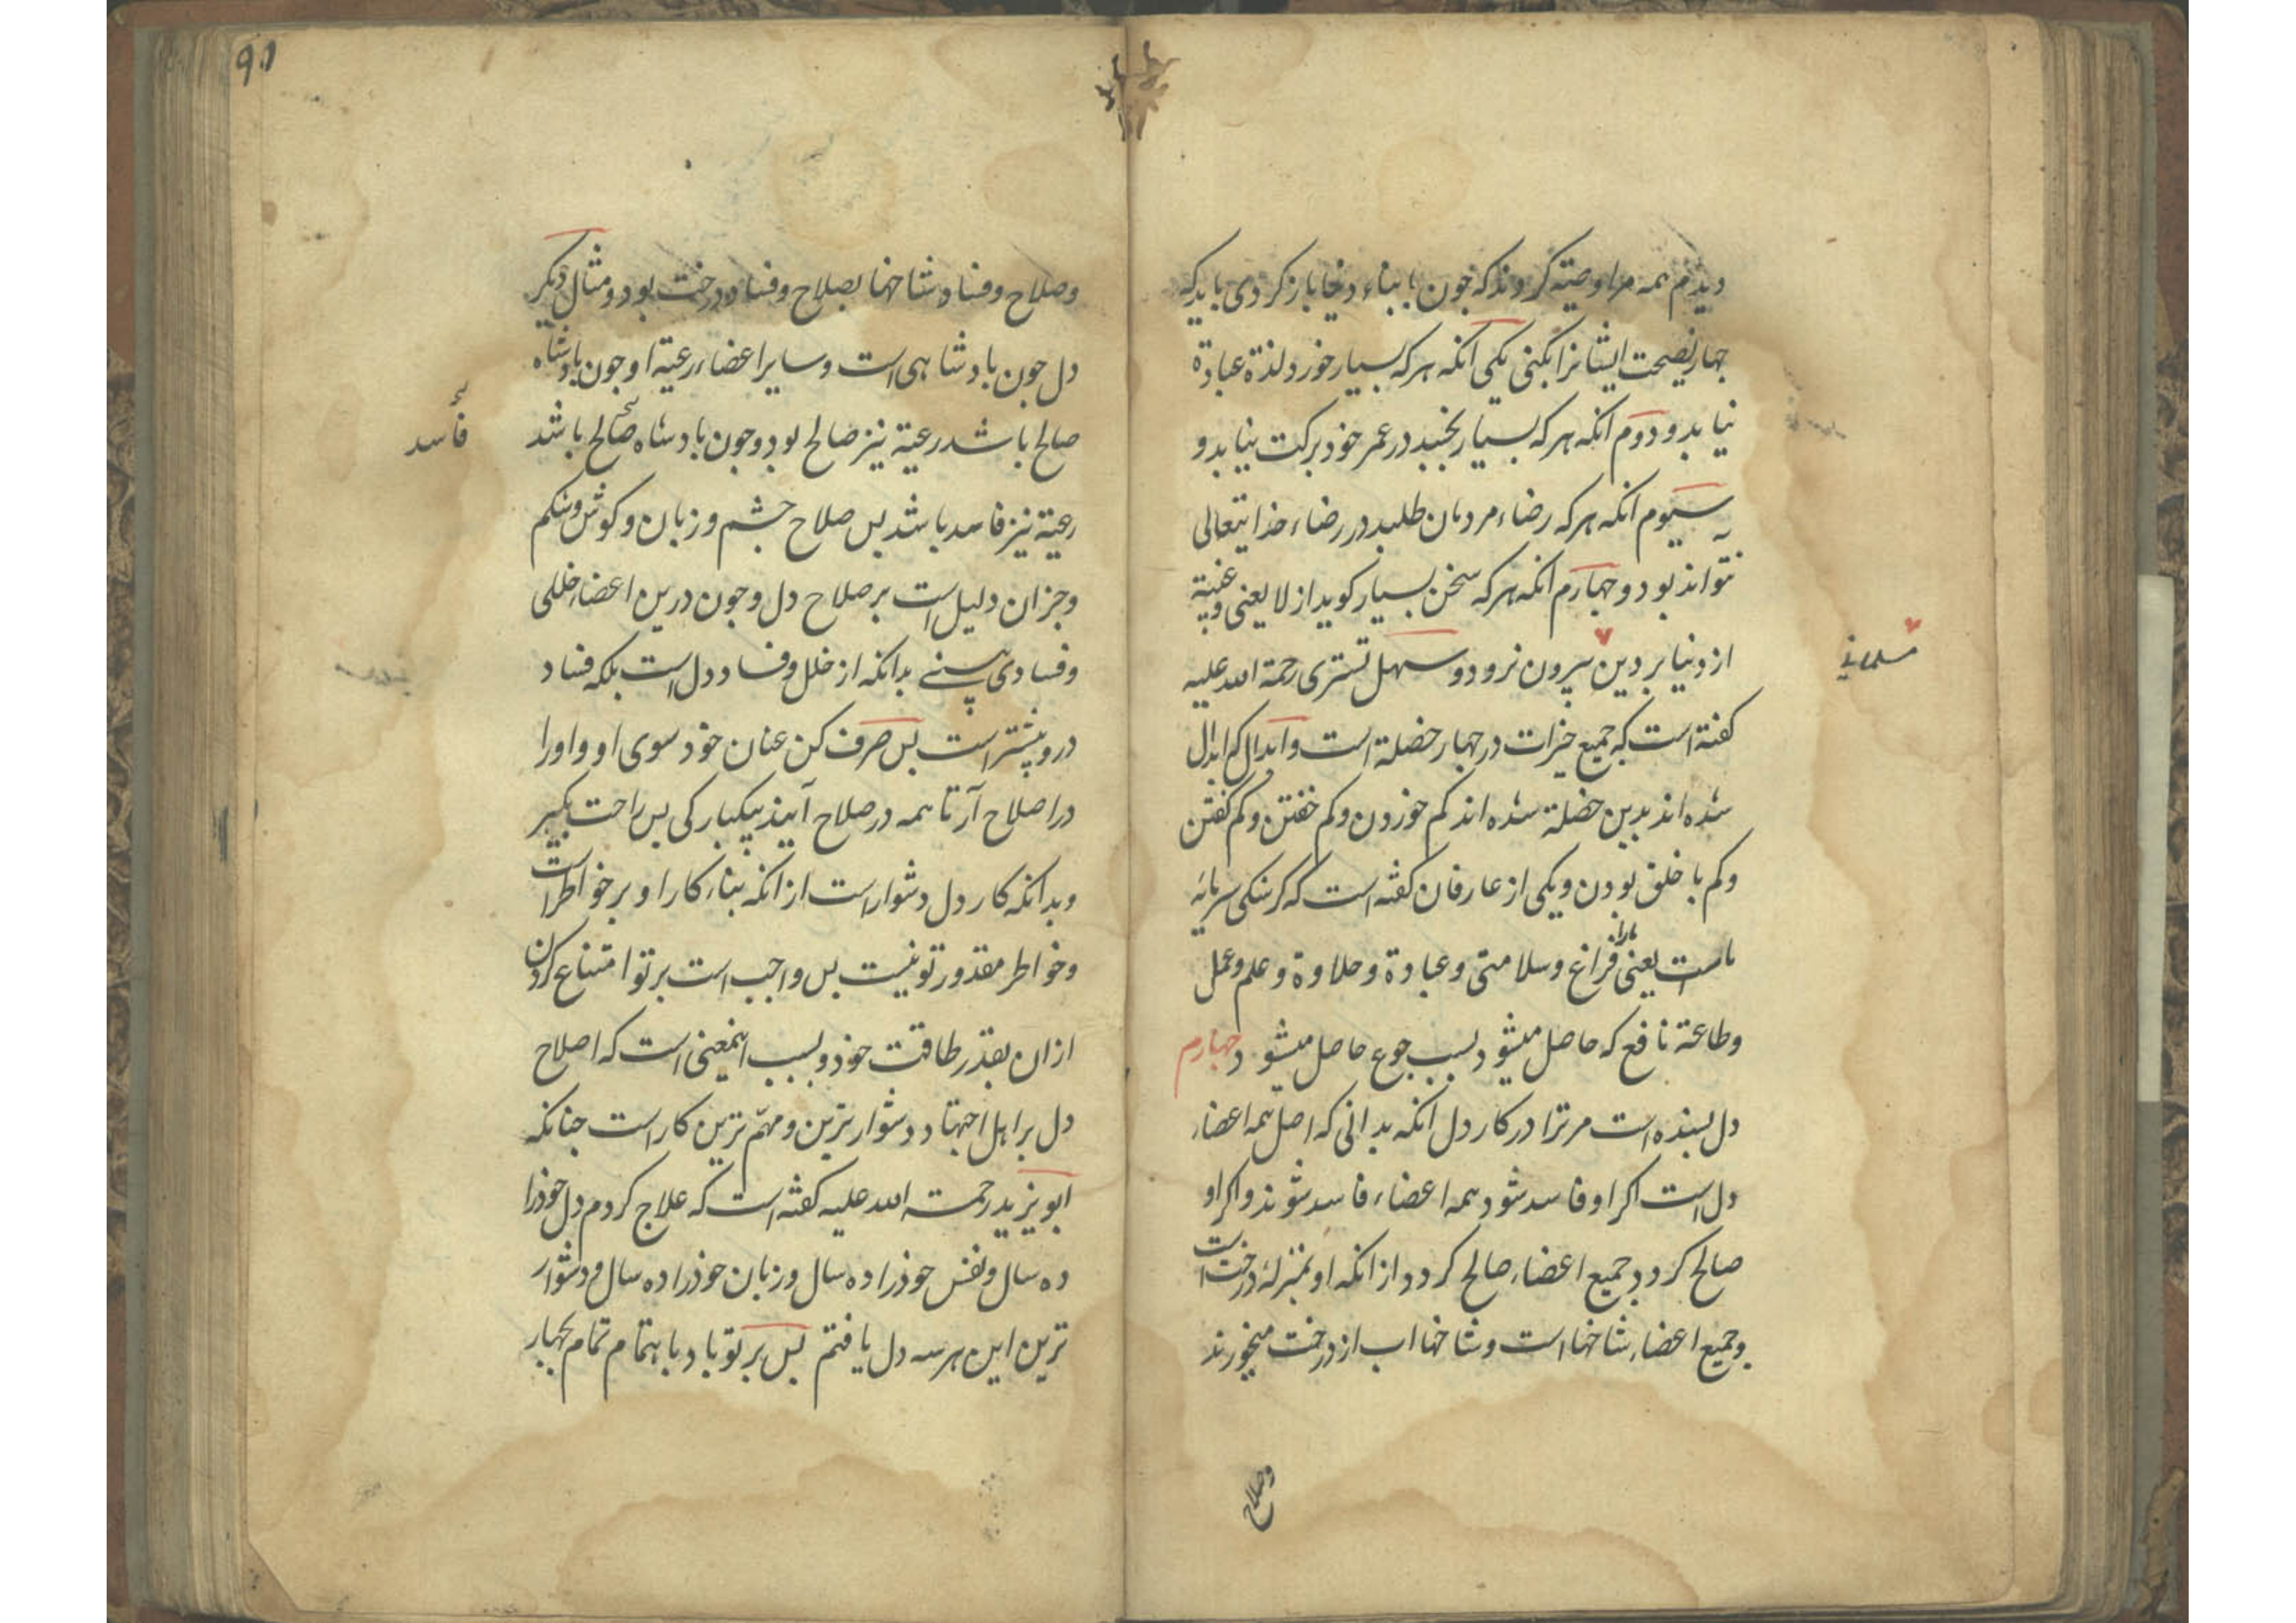 دیدم همه مرا وصیة کردند که چون با بناء دنیا بازکردی باید که
چهار نصیحت ایشانرا بکنی یکی انکه هرکه بسیار خورد لذة عبادة
نیابد و دوم انکه هرکه بسیار بخسبد در عمر خود برکت نیابد و
سیوم انکه هرکه رضاء مردمان طلبد در رضاء خدایتعالی
نتواند بود و چهارم انکه هرکه سخن بسیار کوید از لا یعنی و غیبة
از دنیا بر دین بیرون نرود و سهل تستری رحمة الله علیه
مسلمانی
کفته است که جمیع خیرات در چهار خصلة است و ابدال که ابدال
شده اند بدین خصلة شده اند کم خوردن و کم خفتن و کم کفتن
و کم با خلق بودن و یکی از عارفان کفته است که کرسنکی سرمایۀ
ماست یعنی مارا فراغ و سلامتی و عبادة و حلاوة و علم و عمل
و طاعة نافع که حاصل میشود بسبب جوع حاصل میشود چهارم
دل بسنده است مر ترا در کار دل انکه بدانی که اصل همه اعضاء
دل است اکر او فاسد شود همه اعضاء فاسد شوند و اکر او
صالح کردد جمیع اعضاء صالح کردد از انکه او بمنزلۀ درخت است
و جمیع اعضاء شاخها است و شاخها اب از درخت میخورند
وصلاح
۹۱
وصلاح و فساد شاخها بصلاح و فساد درخت بود و مثال دیکر
دل چون بادشاهی است و سایر اعضاء رعیة او چون بادشاه
صالح باشد رعیة نیز صالح بود و چون بادشاه صالح باشد
فاسد
رعیة نیز فاسد باشد بس صلاح چشم و زبان و کوش و شکم
و جز ان دلیل است بر صلاح دل و چون درین اعضاء خللی
و فسادی بینی بدانکه از خلل و فساد دل است بلکه فساد
درو بیشتر است بس صرف کن عنان خود سوی او و اورا
در اصلاح آر تا همه در صلاح آیند بیکبارکی بس راحت بکیر
و بدانکه کار دل دشوار است از انکه بناء کار او بر خواطر است
و خواطر مقدور تو نیست بس واجب است بر تو امتناع کردن
ازان بقدر طاقت خود و بسبب اینمعنی است که اصلاح
دل بر اهل اجتهاد دشوارترین و مهم ترین کار است چنانکه
ابو یزید رحمة الله علیه کفته است که علاج کردم دل خودرا
ده سال و نفس خودرا ده سال و زبان خودرا ده سال و دشوار
ترین این هر سه دل یافتم بس بر تو باد باهتمام تمام بچهار